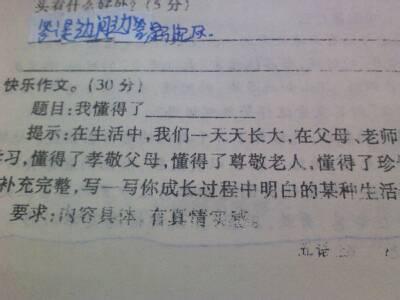 实有什么好处？(5分)
答：是边问边
快乐作文。(30分)
题目：我懂得了
提示：在生活中，我们一天天长大，在父母、老师
习，懂得了孝敬父母，懂得了尊敬老人，懂得了珍
补充完整，写一写你成长过程中明白的某种生活
要求：内容具体，有真情实感。
五语